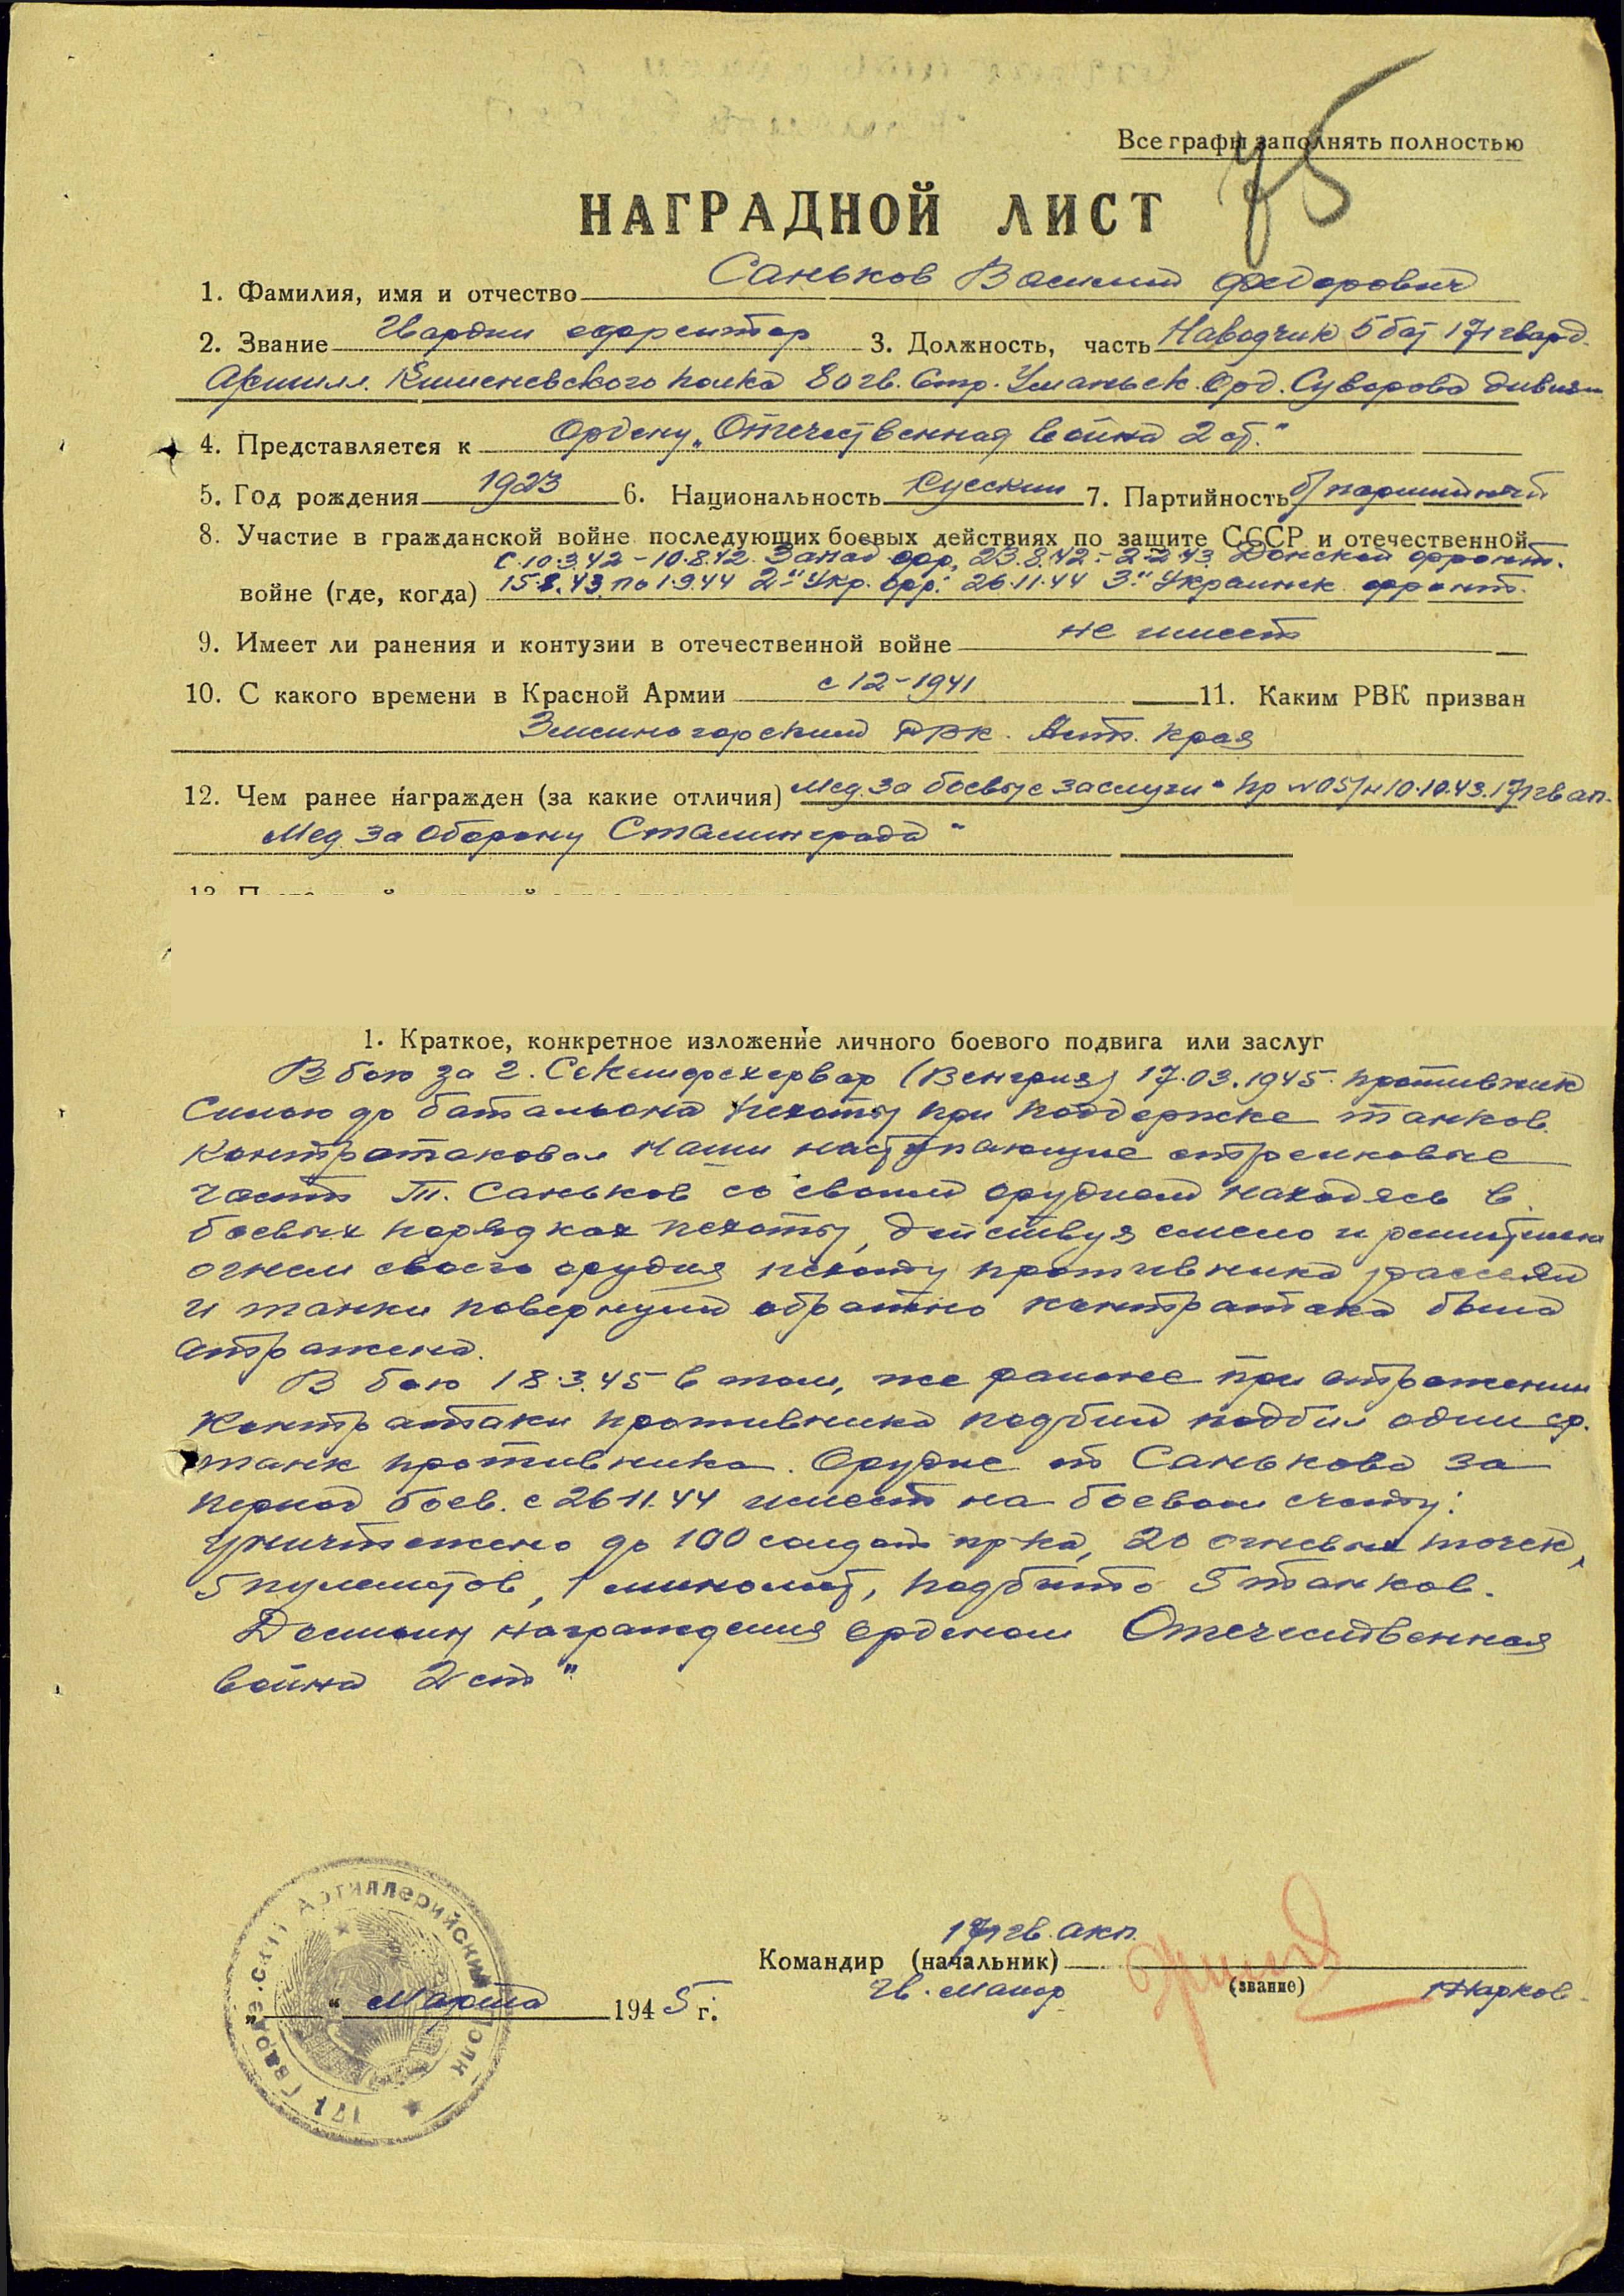 Все графы заполнять полностью
75
НАГРАДНОЙ ЛИСТ
1. Фамилия, имя и отчество Саньков Василий Федорович
2. Звание Гвардии ефрейтор 3. Должность, часть Наводчик 5 бат 171 гвард.
Артилл. Кишеневского полка 80 гв. Стр. Уманьск. Орд. Суворова дивизи
4. Представляется к Ордену „Отечественная война 2 ст."
5. Год рождения 1923 6. Национальность Русский 7. Партийность б/партийный
8. Участие в гражданской войне последующих боевых действиях по защите СССР и отечественной
С 10.3.42 - 10.8.42 Запад фр, 23.8.42 - 2-2-43 Донской фронт.
войне (где, когда) 15.8.43 по 1.9.44 2й Укр. фр. 26.11.44 3й Украинск фронт.
9. Имеет ли ранения и контузии в отечественной войне не имеет
10. С какого времени в Красной Армии с 12-1941 11. Каким РВК призван
Змеиногорский РВК. Алт. Края
12. Чем ранее награжден (за какие отличия) Мед. За боевые заслуги" пр №05/н 10.10.43. 171 гв ап.
Мед За Оборону Сталинграда"
1. Краткое, конкретное изложение личного боевого подвига или заслуг
В бою за г. Секешфехервар (Венгрия) 17.03.1945 противник
Силою до батальона пехоты при поддержке танков
Контратаковал Наши наступающие стрелковые
части Т. Саньков со своим орудием находясь в
боевых порядках пехоты, действуя смело и решительно
огнем своего орудия пехоту противника рассеял
и танки повернули обратно контратака была
отражена.
В бою 18.3.45 в том, же районе при отражении
Контратаки противника подбил один ср.
танк противника. Орудие Санькова за
период боев. с 26 11.44 имеет на боевом счету:
Уничтожено до 100 солдат пр-ка, 20 огневых точек,
5 пулеметов, 1 миномет, подбито 5 танков.
Достоин награждения орденом Отечественная
война 2 ст"
171 гв. акп.
Командир (начальник)
Гв. Майор (звание) Жарков
„ " Марта 1945 г.
171 Гвардейский Артиллерийский Полк